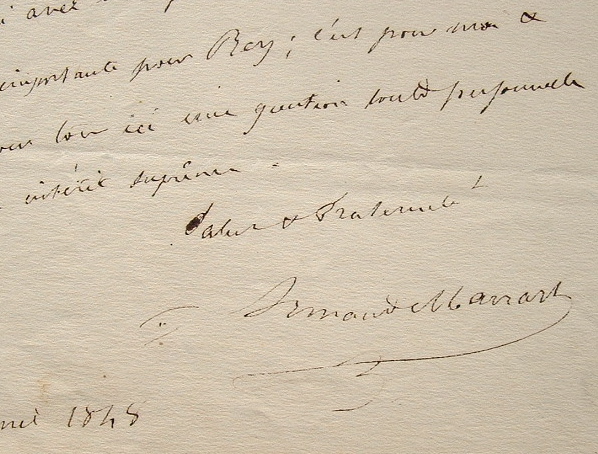 avec
importante pour Rey ; c'est pour moi &
pour tous ici une question toute personnelle
intérêt suprême.
Salut & Fraternité
Armand Marrast
1848